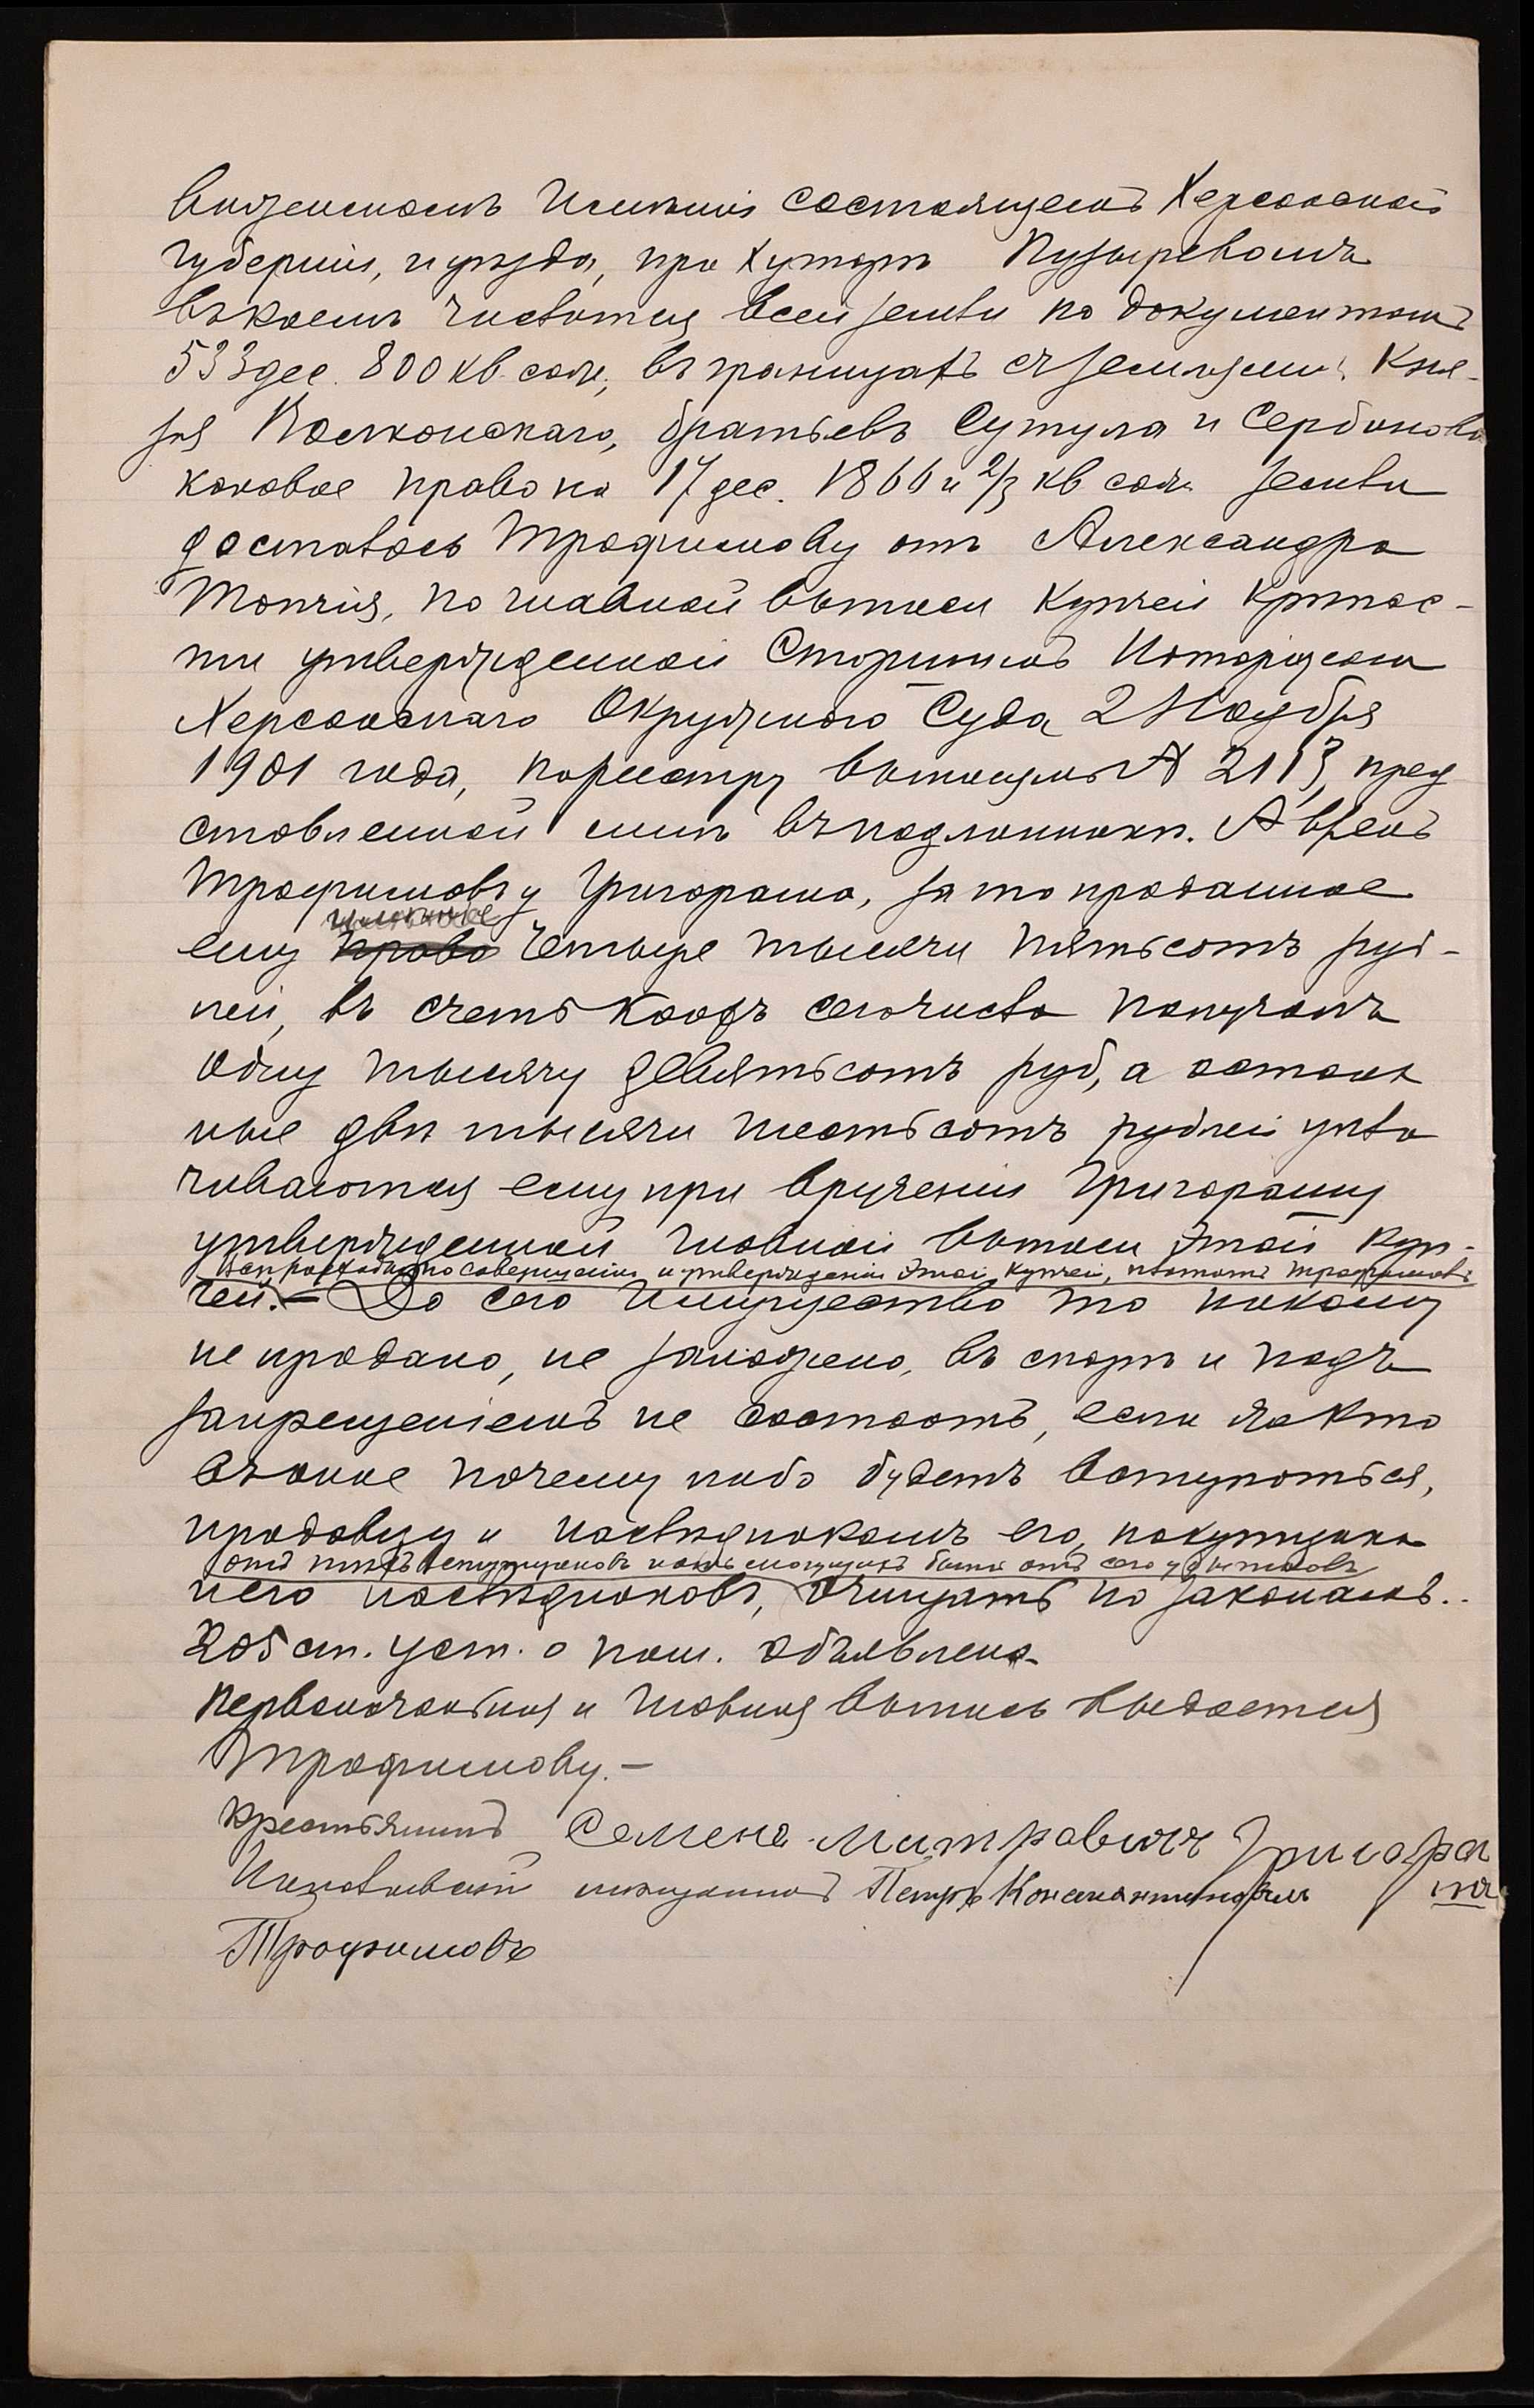 имѣніи состоящемъ Херсонской
губерніи, и уѣзда, при хуторѣ Пузыревомъ
въ коемъ числится всей земли по документамъ
533 дес. 800 кв. саж., въ границахъ съ землями: Кня-
зя Волконскаго, братьевъ Сутула и Сербинова
каковое право на 17 дес. 1866 и 2/3 кв саж земли
досталось Трофимову отъ Александра
Топчія, по главной выписи купчей крѣпос-
ти утвержденной Старшимъ Нотаріусомъ
Херсонскаго Окружнаго Суда 2 Ноября
1901 года, по реестру выписямъ № 2113, пред
ставленной мнѣ въ подлинникѣ. А взялъ
Трофимовъ у Григораша, за то проданное
имѣніе
ему право четыре тысячи пятьсотъ руб-
лей, въ счетъ коихъ сего числа получилъ
одну тысячу девятьсотъ руб., а осталь
ные двѣ тысячи шестьсотъ рублей упла
чиваются ему при врученіи Григорашу
утвержденной главной выписи этой куп-
Всѣ расходы по совершенію и утвержденію этой купчей, платитъ Трофимовъ
чей. — До сего имущество то никому
не продано, не заложено, въ спорѣ и подъ
запрещеніемъ не состоитъ, если же кто
въ оное почему либо будетъ вступаться,
продавцу и наслѣдникамъ его, покупщика
отъ тѣхъ вступщиковъ и отъ могущихъ быть отъ сего убытковъ
и его наслѣдниковъ, очищать по законамъ.
205 ст. уст. о пош. объявлена
Первоначальная и главная выпись выдается
Трофимову. —
Крестьянинъ Семенъ Митровичъ Григора
шъ
мѣщанинъ Петръ Константиновичъ
Трофимовъ